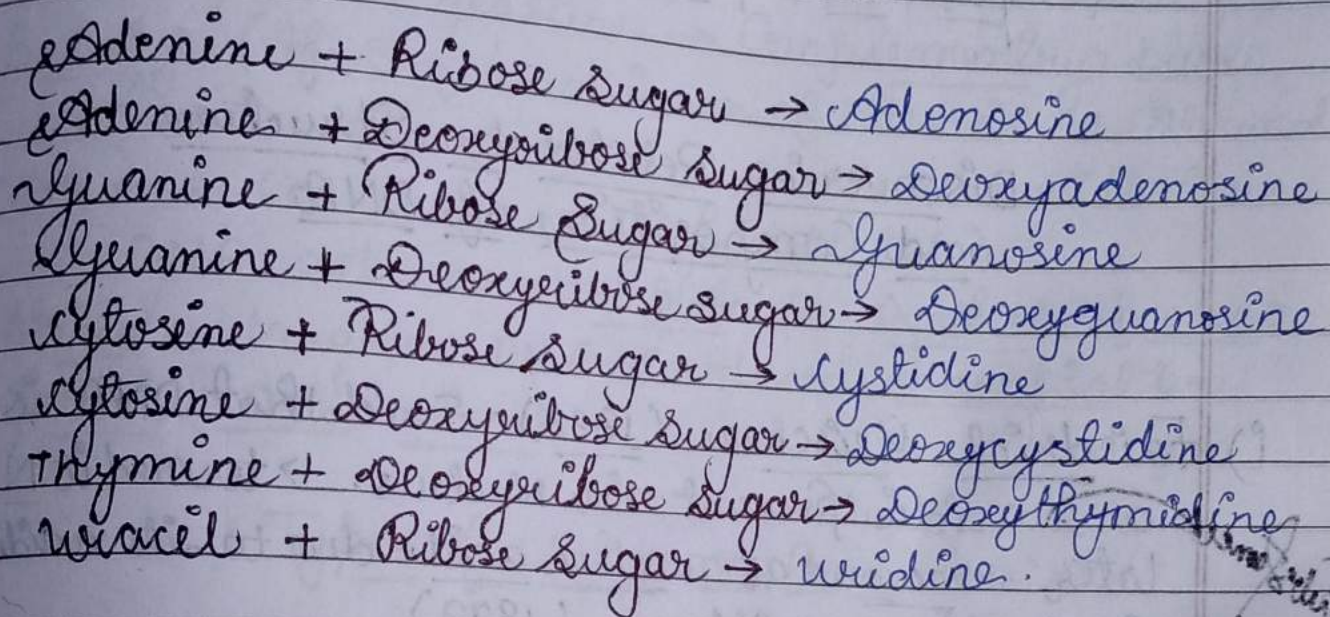 Adenine + Ribose Sugar → Adenosine
Adenine + Deoxyribose Sugar → Deoxyadenosine
Guanine + Ribose Sugar → Guanosine
Guanine + Deoxyribose Sugar → Deoxyguanosine
Cytosine + Ribose Sugar → Cystidine
Cytosine + Deoxyribose Sugar → Deoxycystidine
Thymine + Deoxyribose Sugar → Deoxythymidine
Uracil + Ribose Sugar → Uridine.